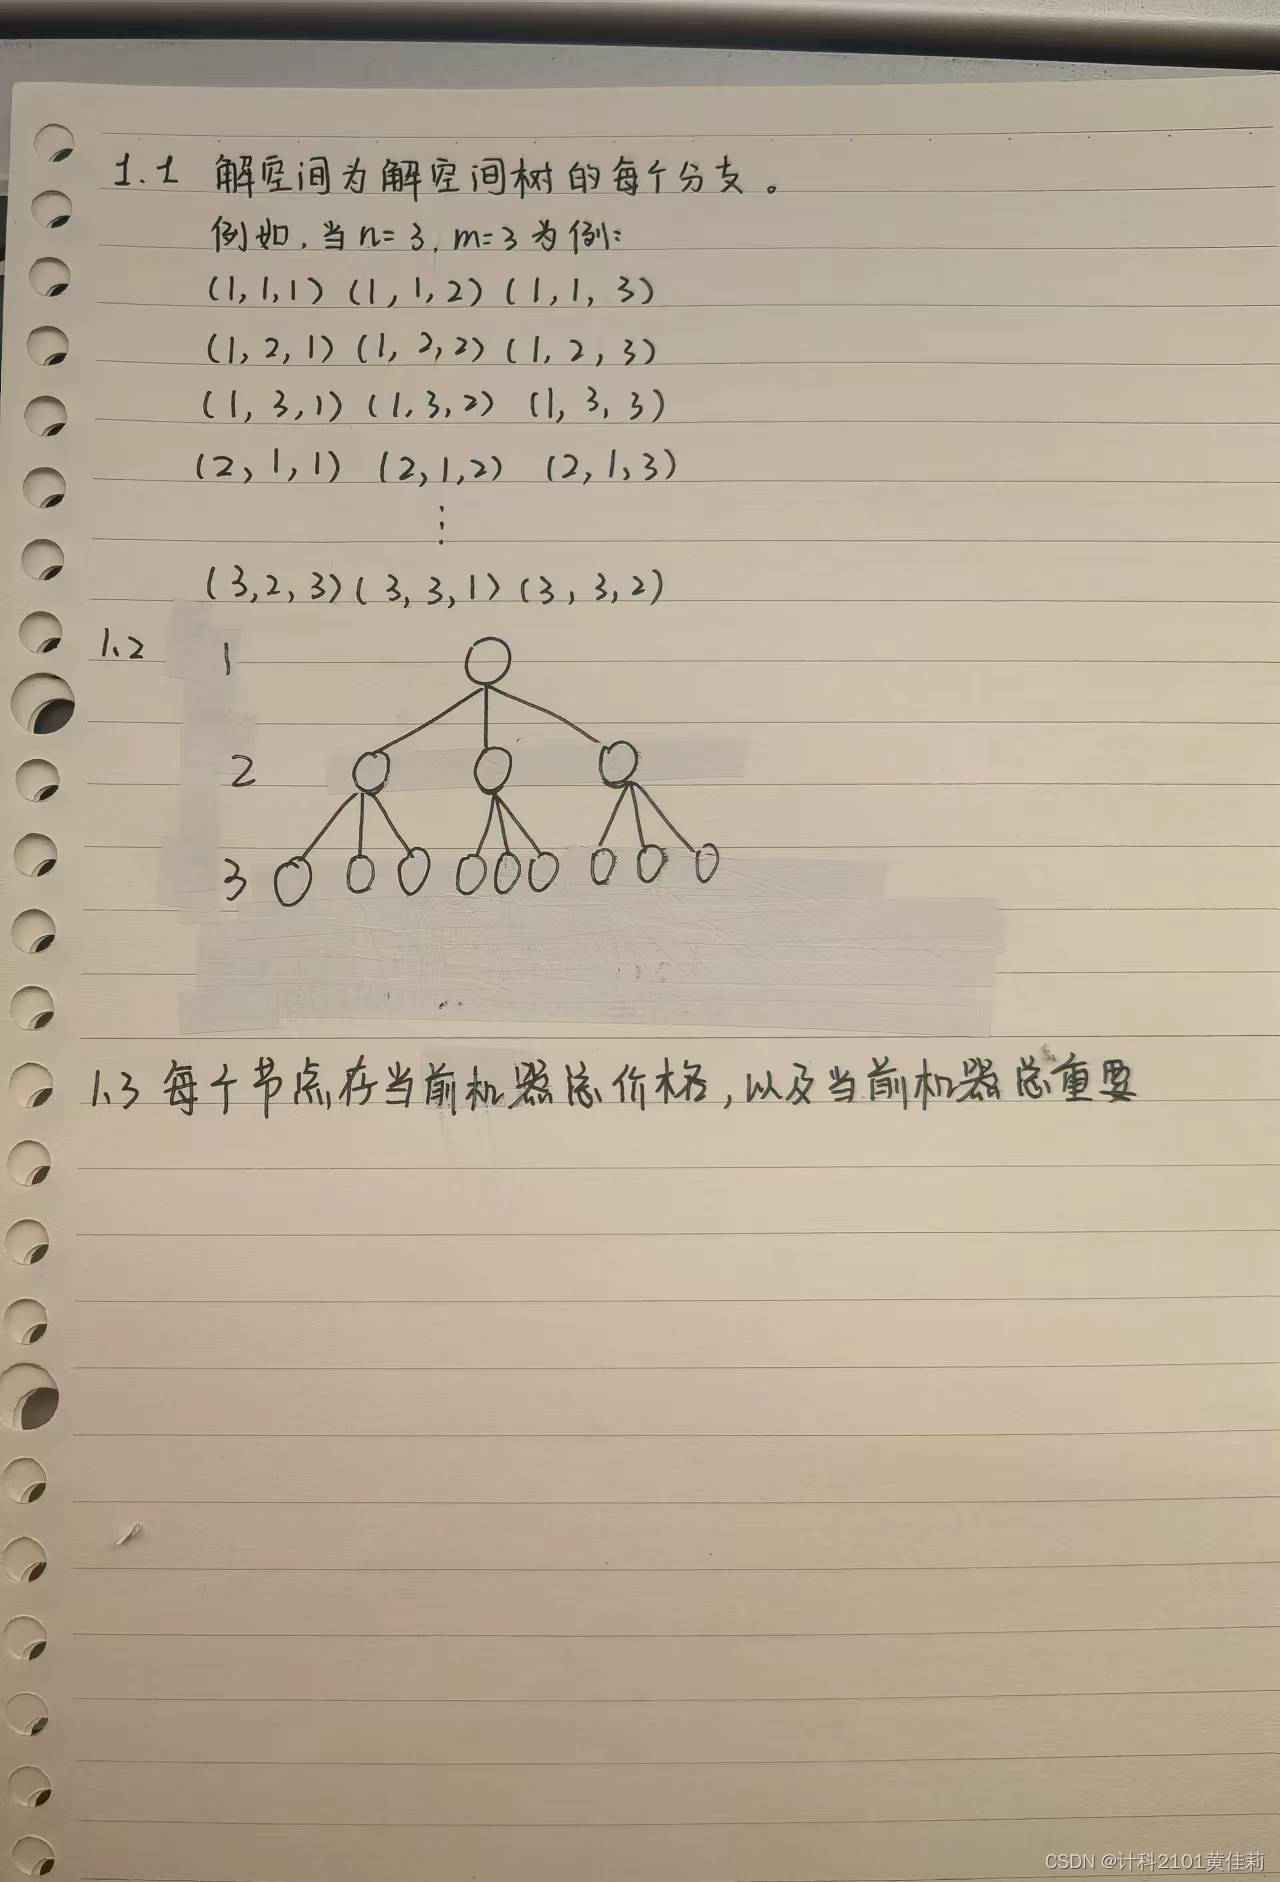 1.1 解空间为解空间树的每个分支。
例如,当n=3,m=3为例:
(1,1,1) (1,1,2) (1,1,3)
(1,2,1) (1,2,2) (1,2,3)
(1,3,1) (1,3,2) (1,3,3)
(2,1,1) (2,1,2) (2,1,3)
⋮
(3,2,3) (3,3,1) (3,3,2)
1.2 1
2
3
1.3 每个节点存当前机器总价格,以及当前机器总重要
CSDN @计科2101黄佳莉